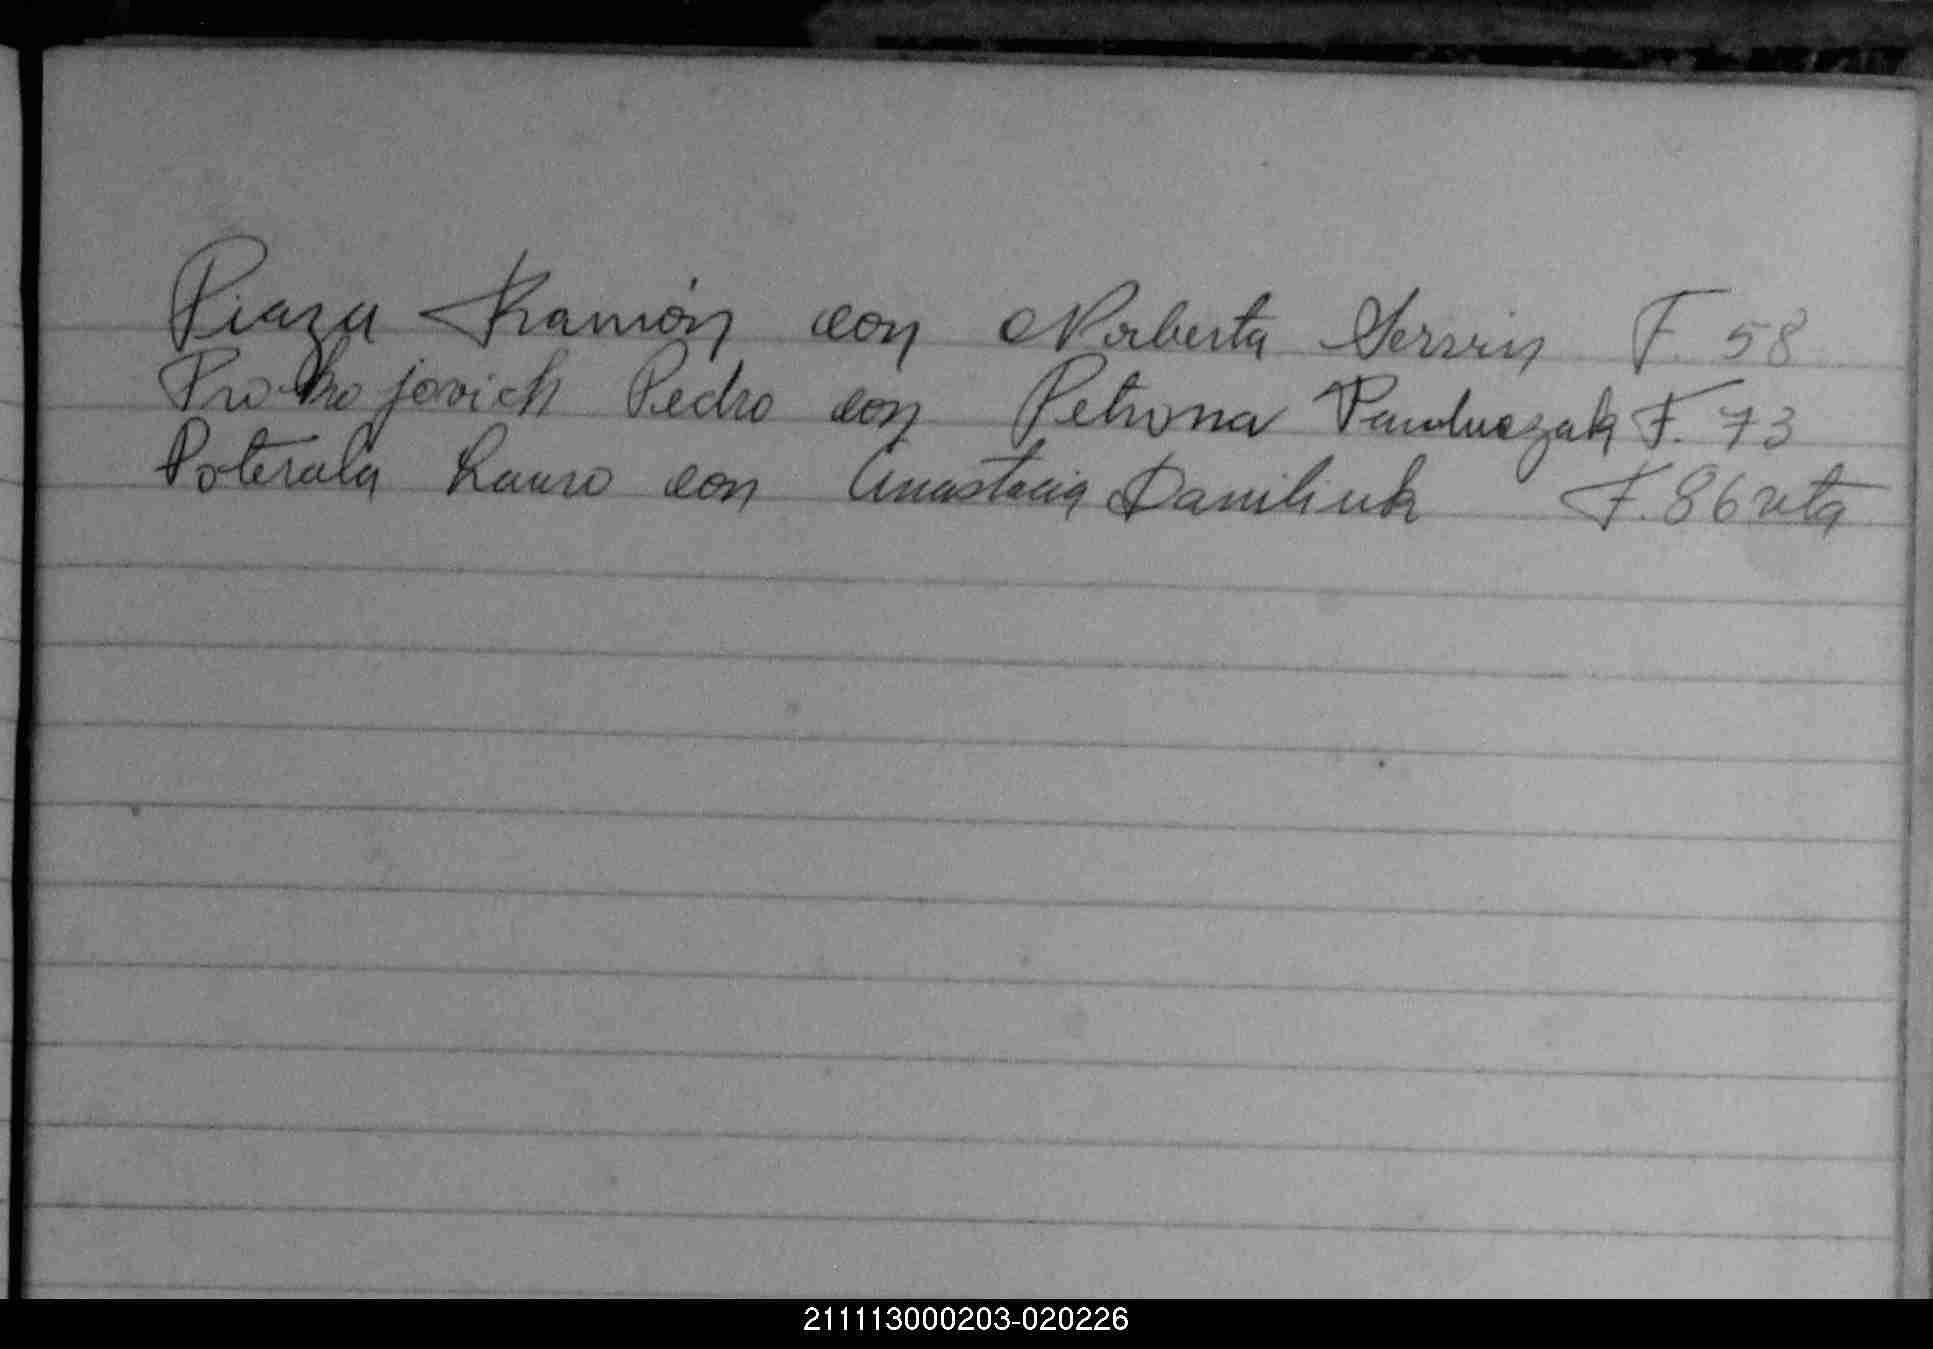 Piaza Ramón con Norberta Servin F. 58
Prokojovich Pedro con Petrona Panduczak F. 73
Poterala Lauro con Anastacia Daniliuk F. 86 vta
211113000203-020226